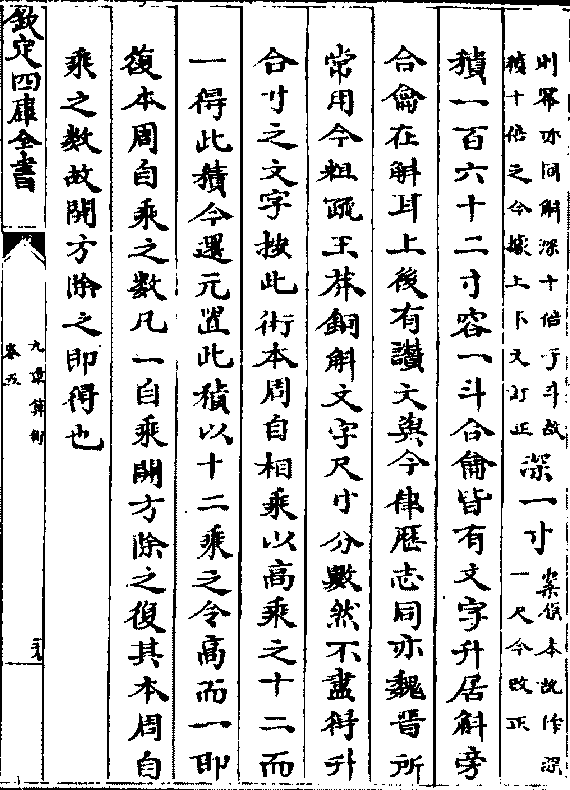 則冪亦同斛深十倍于斗故
積十倍之今據上下文訂正
深一寸
案原本訛作深
一尺今改正
積一百六十二寸容一斗合龠皆有文字升居斛旁
合龠在斛耳上後有讃文與今律歷志同亦魏晉所
常用今粗疏王莽銅斛文字尺寸分數然不盡得升
合寸之文字按此術本周自相乘以高乘之十二而
一得此積今還元置此積以十二乘之令高而一即
復本周自乘之數凡一自乘開方除之復其本周自
乘之數故開方除之即得也
欽定四庫全書
九章算術
卷五